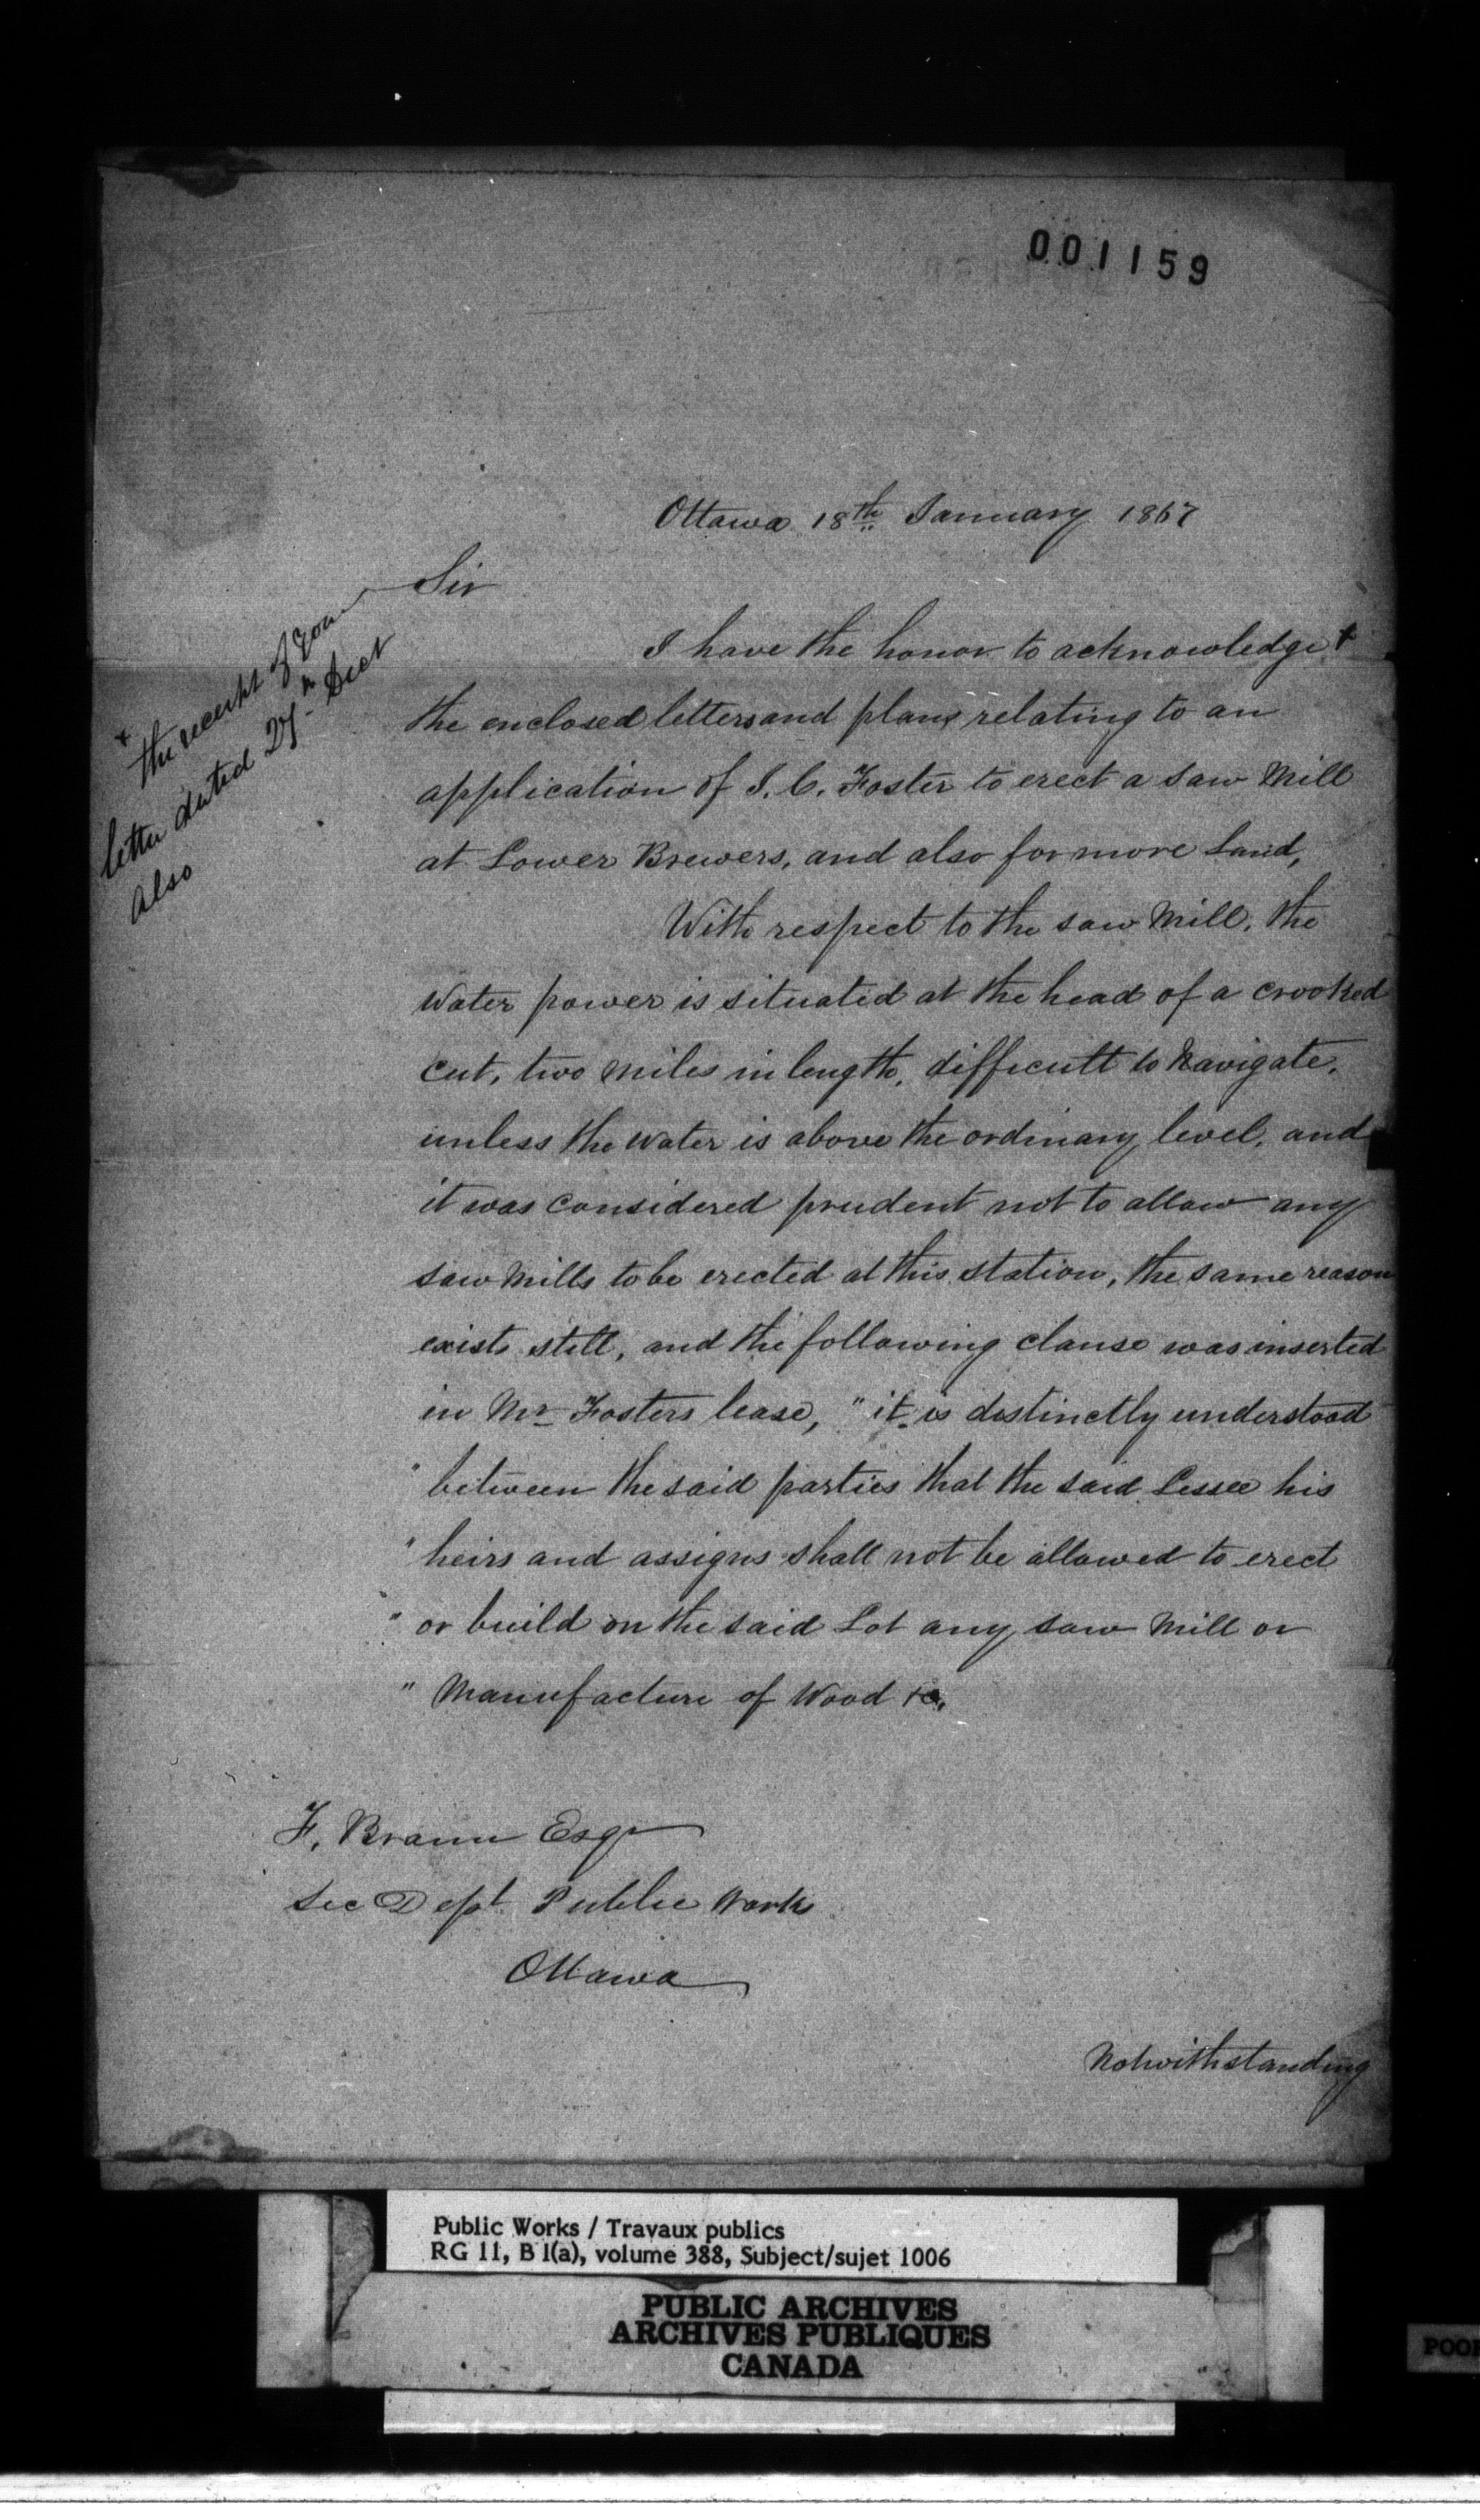 001159
Ottawa 18th January 1867
Sir
I have the honor to acknowledge +
+ the receipt of your
letter dated 27th Dect
also
the enclosed letters and plans relating to an
application of J. C. Foster to erect a saw Mill
at Lower Brewers, and also for more Land,
With respect to the saw Mill, the
Water power is situated at the head of a crooked
cut, two Miles in length, difficult to Navigate,
unless the Water is above the ordinary level, and
it was considered prudent not to allow any
saw Mills to be erected at this station, the same reason
exists still, and the following clause was inserted
in Mr Fosters lease, " it is distinctly understood
" between the said parties that the said Lessee his
" heirs and assigns shall not be allowed to erect
" or build on the said Lot any saw Mill or
" Manufacture of Wood &c,
F. Braun Esqr
Sec Dept Public Works
Ottawa
Notwithstanding
Public Works / Travaux publics
RG 11, B 1(a), volume 388, Subject/sujet 1006
PUBLIC ARCHIVES
ARCHIVES PUBLIQUES
CANADA